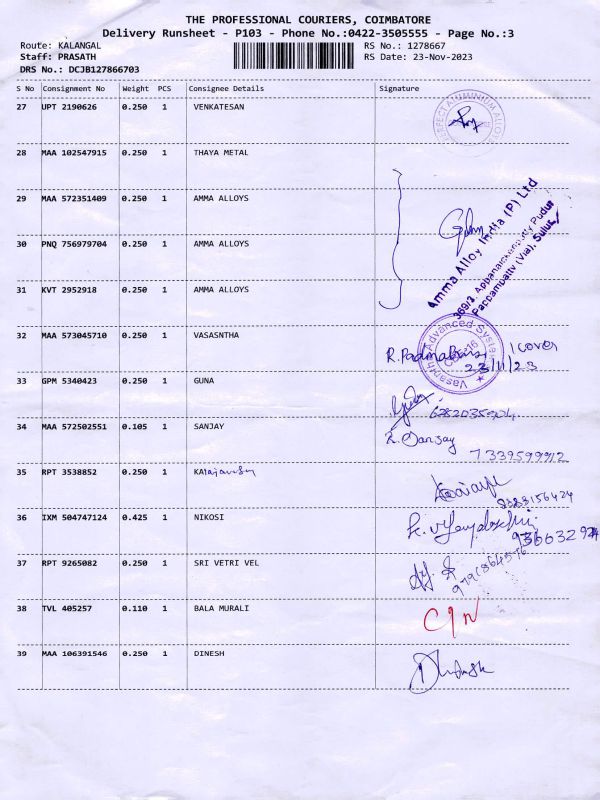 THE PROFESSIONAL COURIERS, COIMBATORE
Delivery Runsheet - P103 - Phone No.:0422-3505555 - Page No.:3
Route: KALANGAL RS No.: 1278667
Staff: PRASATH RS Date: 23-Nov-2023
DRS No.: DCJB127866703
S No Consignment No Weight PCS Consignee Details Signature
27 UPT 2190626 0.250 1 VENKATESAN
28 MAA 102547915 0.250 1 THAYA METAL
29 MAA 572351409 0.250 1 AMMA ALLOYS
30 PNQ 756979704 0.250 1 AMMA ALLOYS
Amma Alloy India (P) Ltd
Pappampatty (Via), Sulur
31 KVT 2952918 0.250 1 AMMA ALLOYS
32 MAA 573045710 0.250 1 VASASNTHA
Advanced System
1 cover
23/11/23
33 GPM 5340423 0.250 1 GUNA
34 MAA 572502551 0.105 1 SANJAY R. Sanjay
7339599912
35 RPT 3538852 0.250 1
8383156424
36 IXM 504747124 0.425 1 NIKOSI
37 RPT 9265082 0.250 1 SRI VETRI VEL
38 TVL 405257 0.110 1 BALA MURALI
39 MAA 106391546 0.250 1 DINESH